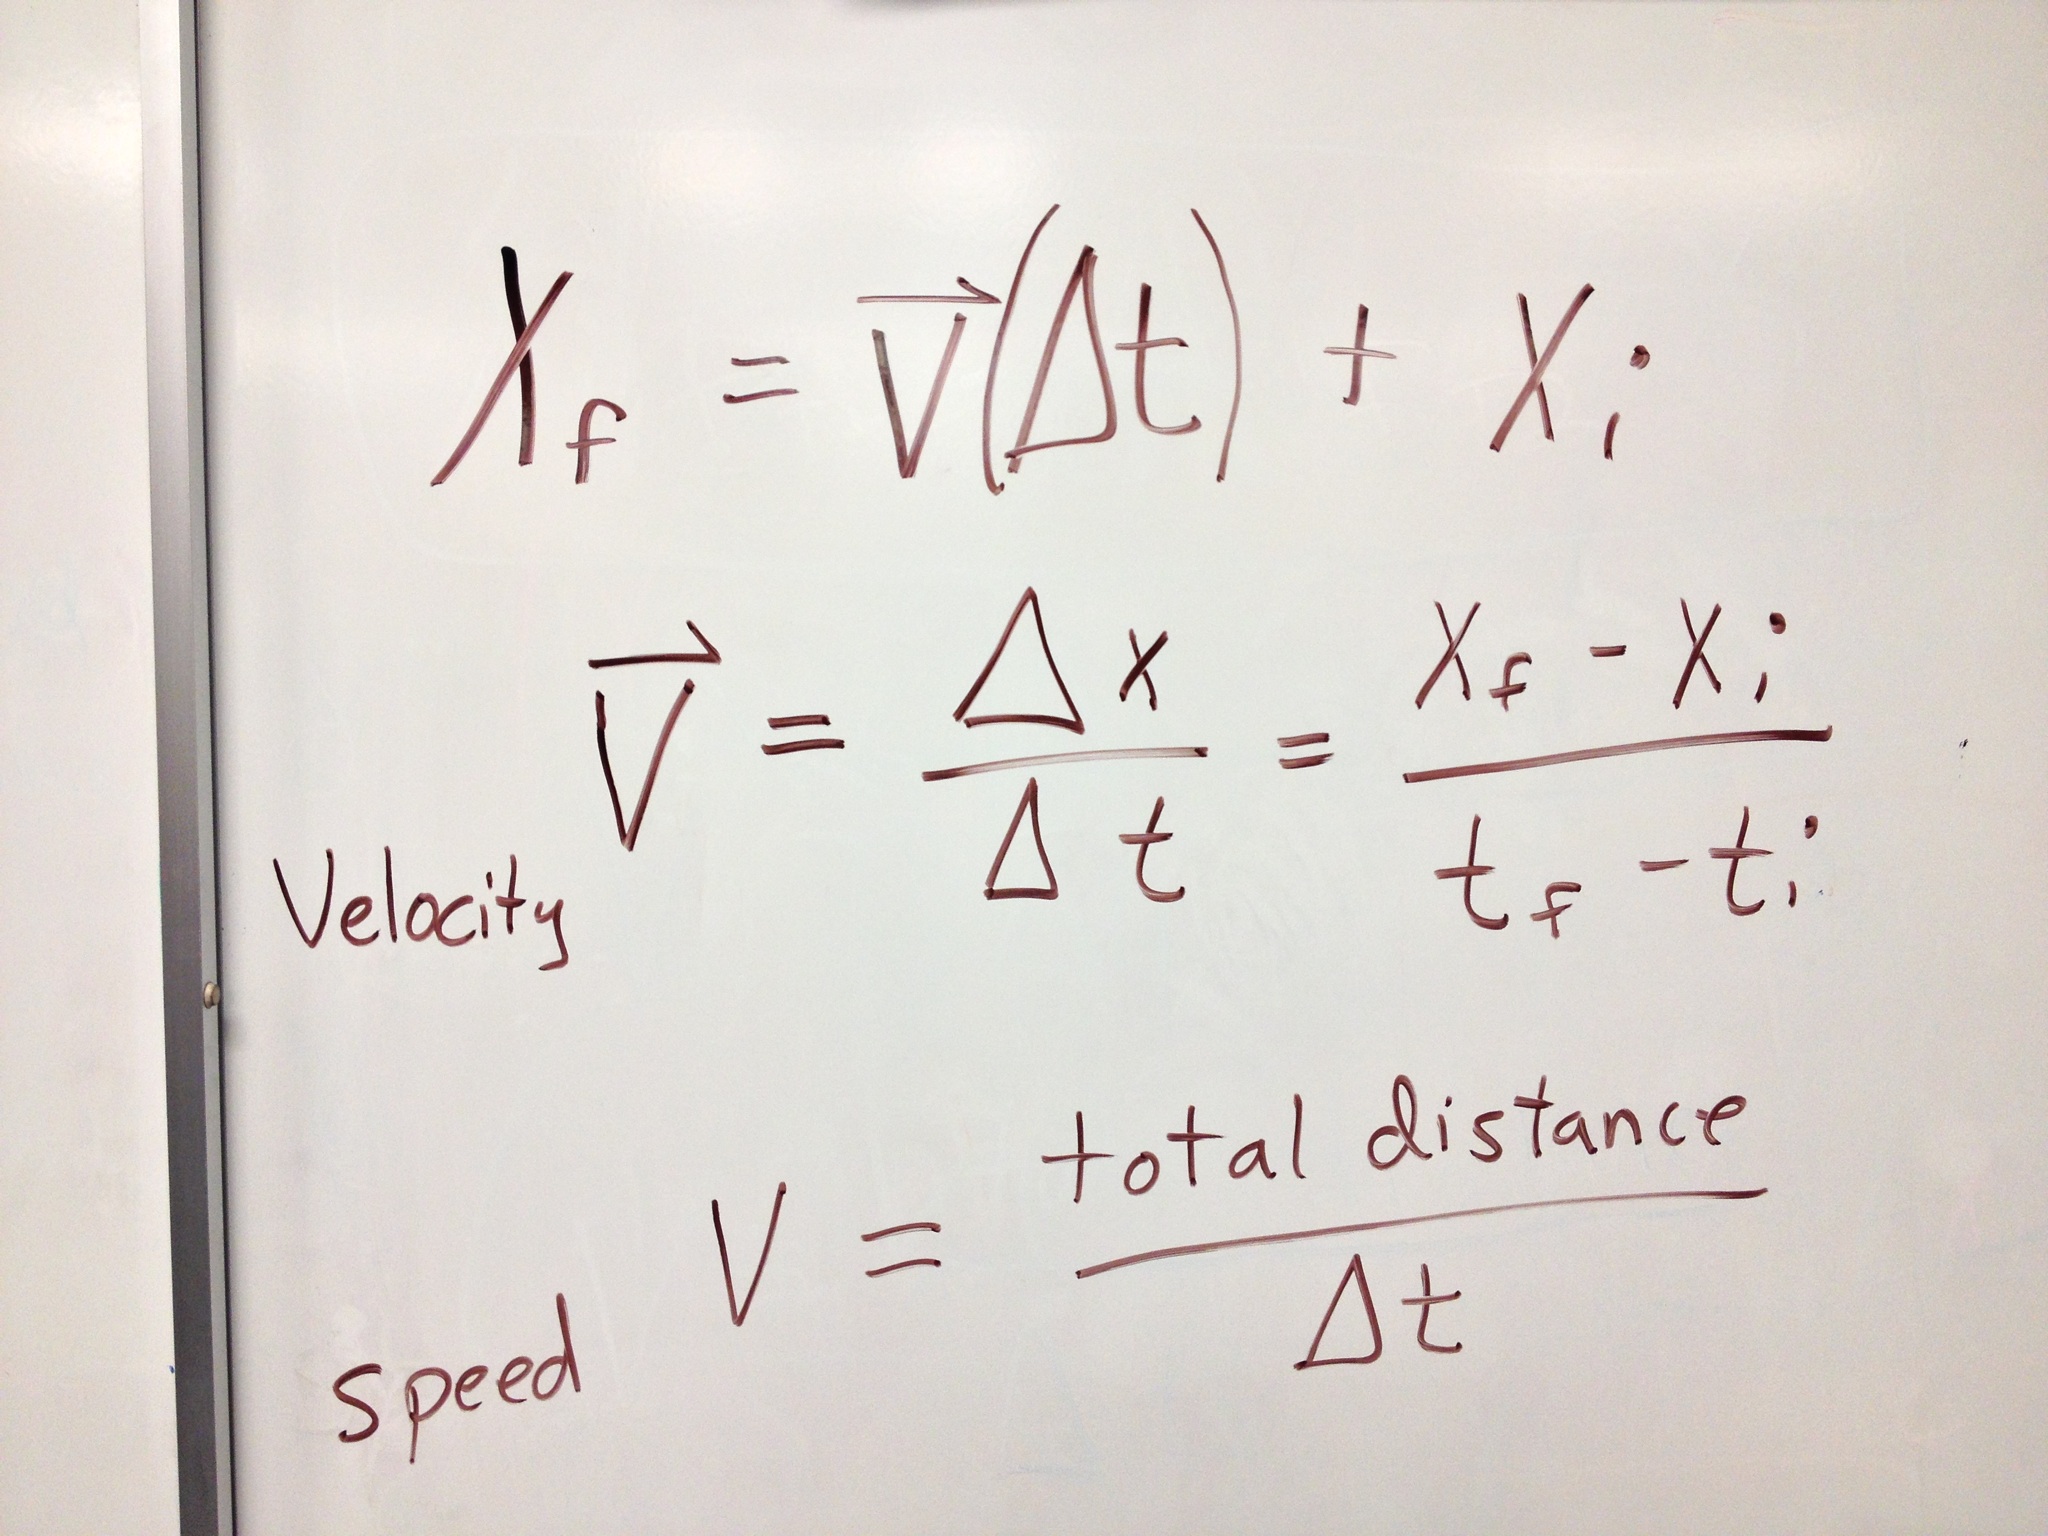 X_f = \vec{V}(Δt) + X_i
Velocity \vec{V} = \frac{Δx}{Δt} = \frac{X_f - X_i}{t_f - t_i}
speed V = \frac{total distance}{Δt}